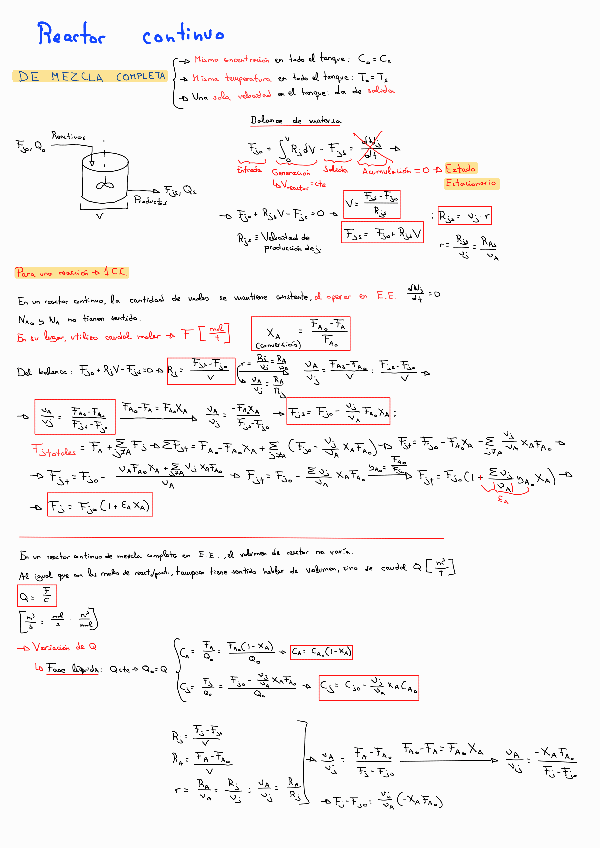 Reactor continuo
DE MEZCLA COMPLETA
→ Misma concentración en todo el tanque: Cₑ = Cₛ
→ Misma temperatura en todo el tanque: Tₑ = Tₛ
→ Una sola velocidad en el tanque: la de salida
Balance de materia
Reactivos
Fⱼ₀, Q₀
Fⱼₛ, Qₛ
Productos
V
Fⱼ₀ + ∫₀ⱽ Rⱼ dV - Fⱼₛ = dNⱼ/dt →
Entrada Generación Salida Acumulación = 0 → Estado Estacionario
↳ V reactor = cte
→ Fⱼ₀ + RⱼₛV - Fⱼₛ = 0 → V = (Fⱼₛ - Fⱼ₀)/Rⱼₛ ; Rⱼₛ = νⱼ · r
Fⱼₛ = Fⱼ₀ + RⱼₛV
Rⱼₛ ≡ Velocidad de producción de j
r = Rⱼₛ/νⱼ = R_Aₛ/ν_A
Para una reacción → 1 E.C.
En un reactor continuo, la cantidad de moles se mantiene constante, al operar en E.E. dNⱼ/dt = 0
N_A₀ y N_A no tienen sentido.
En su lugar, utilizo caudal molar → F [mol/t]
X_A (conversión) = (F_A₀ - F_A)/F_A₀
Del balance: Fⱼ₀ + RⱼV - Fⱼₛ = 0 → Rⱼ = (Fⱼₛ - Fⱼ₀)/V
r = Rⱼ/νⱼ = R_A/ν_A
ν_A/νⱼ = R_A/Rⱼ
→ ν_A/νⱼ = (F_A - F_A₀)/(Fⱼₛ - Fⱼ₀) F_A₀ - F_A = F_A₀X_A ν_A/νⱼ = -F_A₀X_A/(Fⱼₛ - Fⱼ₀) → Fⱼₛ = Fⱼ₀ - νⱼ/ν_A F_A₀ X_A ;
Fⱼ totales = F_A + Σ Fⱼ → ΣFⱼ = F_A₀ - F_A₀X_A + Σ (Fⱼ₀ - νⱼ/ν_A X_A F_A₀) → Fⱼₜ = Fⱼ₀ - F_A₀X_A - Σ νⱼ/ν_A X_A F_A₀ →
→ Fⱼₜ = Fⱼ₀ - (ν_A F_A₀ X_A + Σ νⱼ X_A F_A₀)/ν_A → Fⱼₜ = Fⱼ₀ - Σνⱼ/ν_A X_A F_A₀ → Fⱼₜ = Fⱼ₀ (1 + Σνⱼ/|ν_A| y_A₀ X_A) →
ε_A
→ Fⱼ = Fⱼ₀ (1 + ε_A X_A)
En un reactor continuo de mezcla completa en E.E., el volumen de reactor no varía.
Al igual que con los moles de react/prod., tampoco tiene sentido hablar de volumen, sino de caudal Q [m³/t]
Q = F/C
[m³/s = mol/s · m³/mol]
→ Variación de Q
↳ Fase líquida: Q cte → Q₀ = Q
C_A = F_A/Q₀ = F_A₀(1 - X_A)/Q₀ → C_A = C_A₀(1 - X_A)
Cⱼ = Fⱼ/Q₀ = (Fⱼ₀ - νⱼ/ν_A X_A F_A₀)/Q₀ → Cⱼ = Cⱼ₀ - νⱼ/ν_A X_A C_A₀
Rⱼ = (Fⱼ - Fⱼ₀)/V
R_A = (F_A - F_A₀)/V
r = R_A/ν_A = Rⱼ/νⱼ ; ν_A/νⱼ = R_A/Rⱼ
→ ν_A/νⱼ = (F_A - F_A₀)/(Fⱼ - Fⱼ₀) F_A₀ - F_A = F_A₀ X_A ν_A/νⱼ = -X_A F_A₀/(Fⱼ - Fⱼ₀)
→ Fⱼ - Fⱼ₀ = νⱼ/ν_A (-X_A F_A₀)